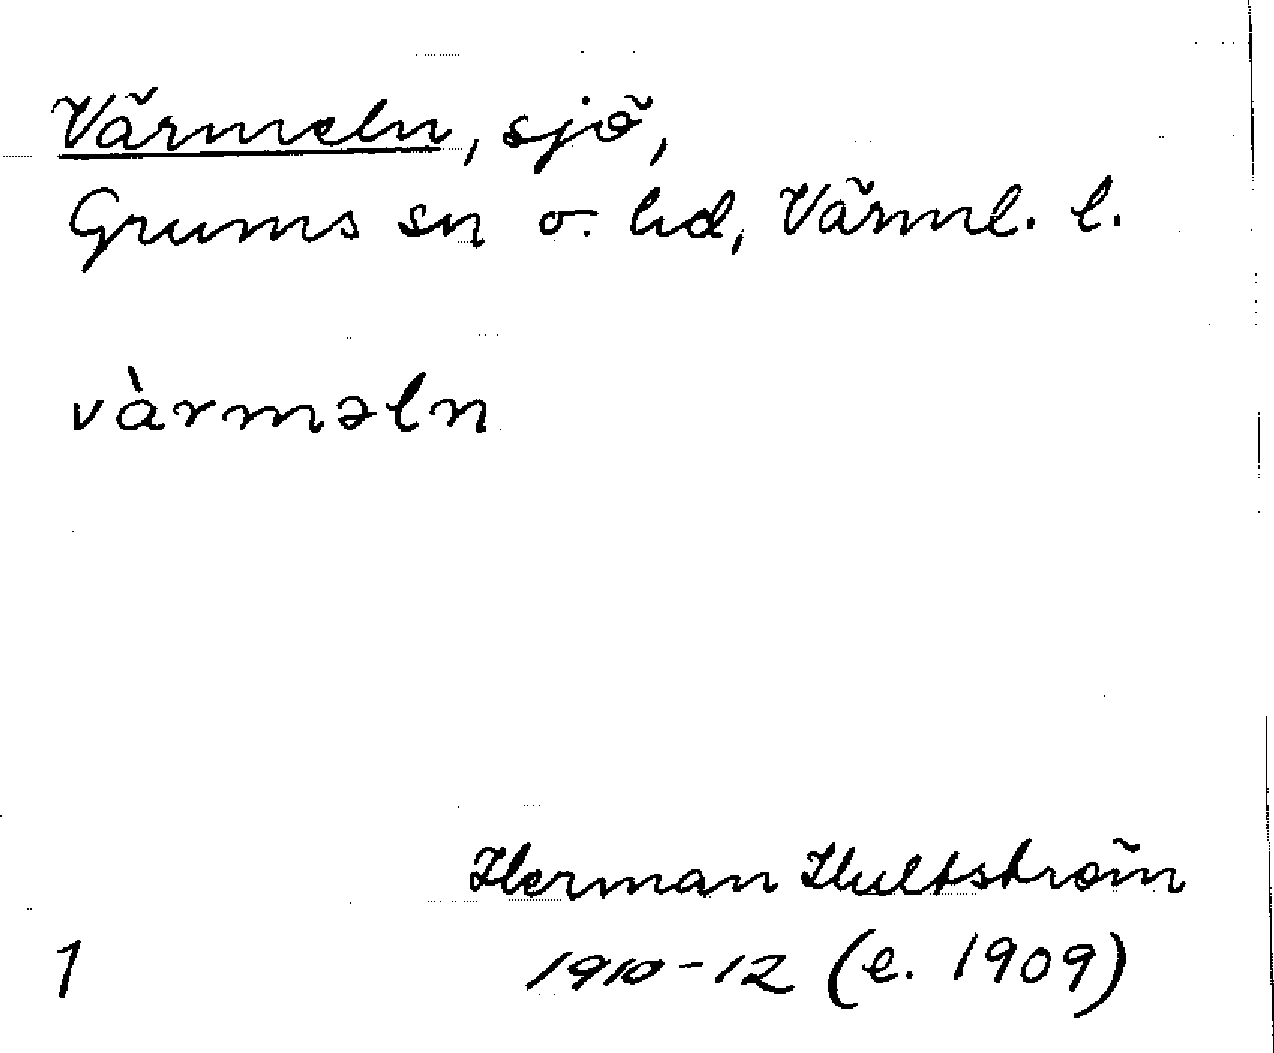 Värmeln, sjö,
Grums sn o. hd, Värml. l.
vàrməln
Herman Hultström
1910-12 (e. 1909)
1